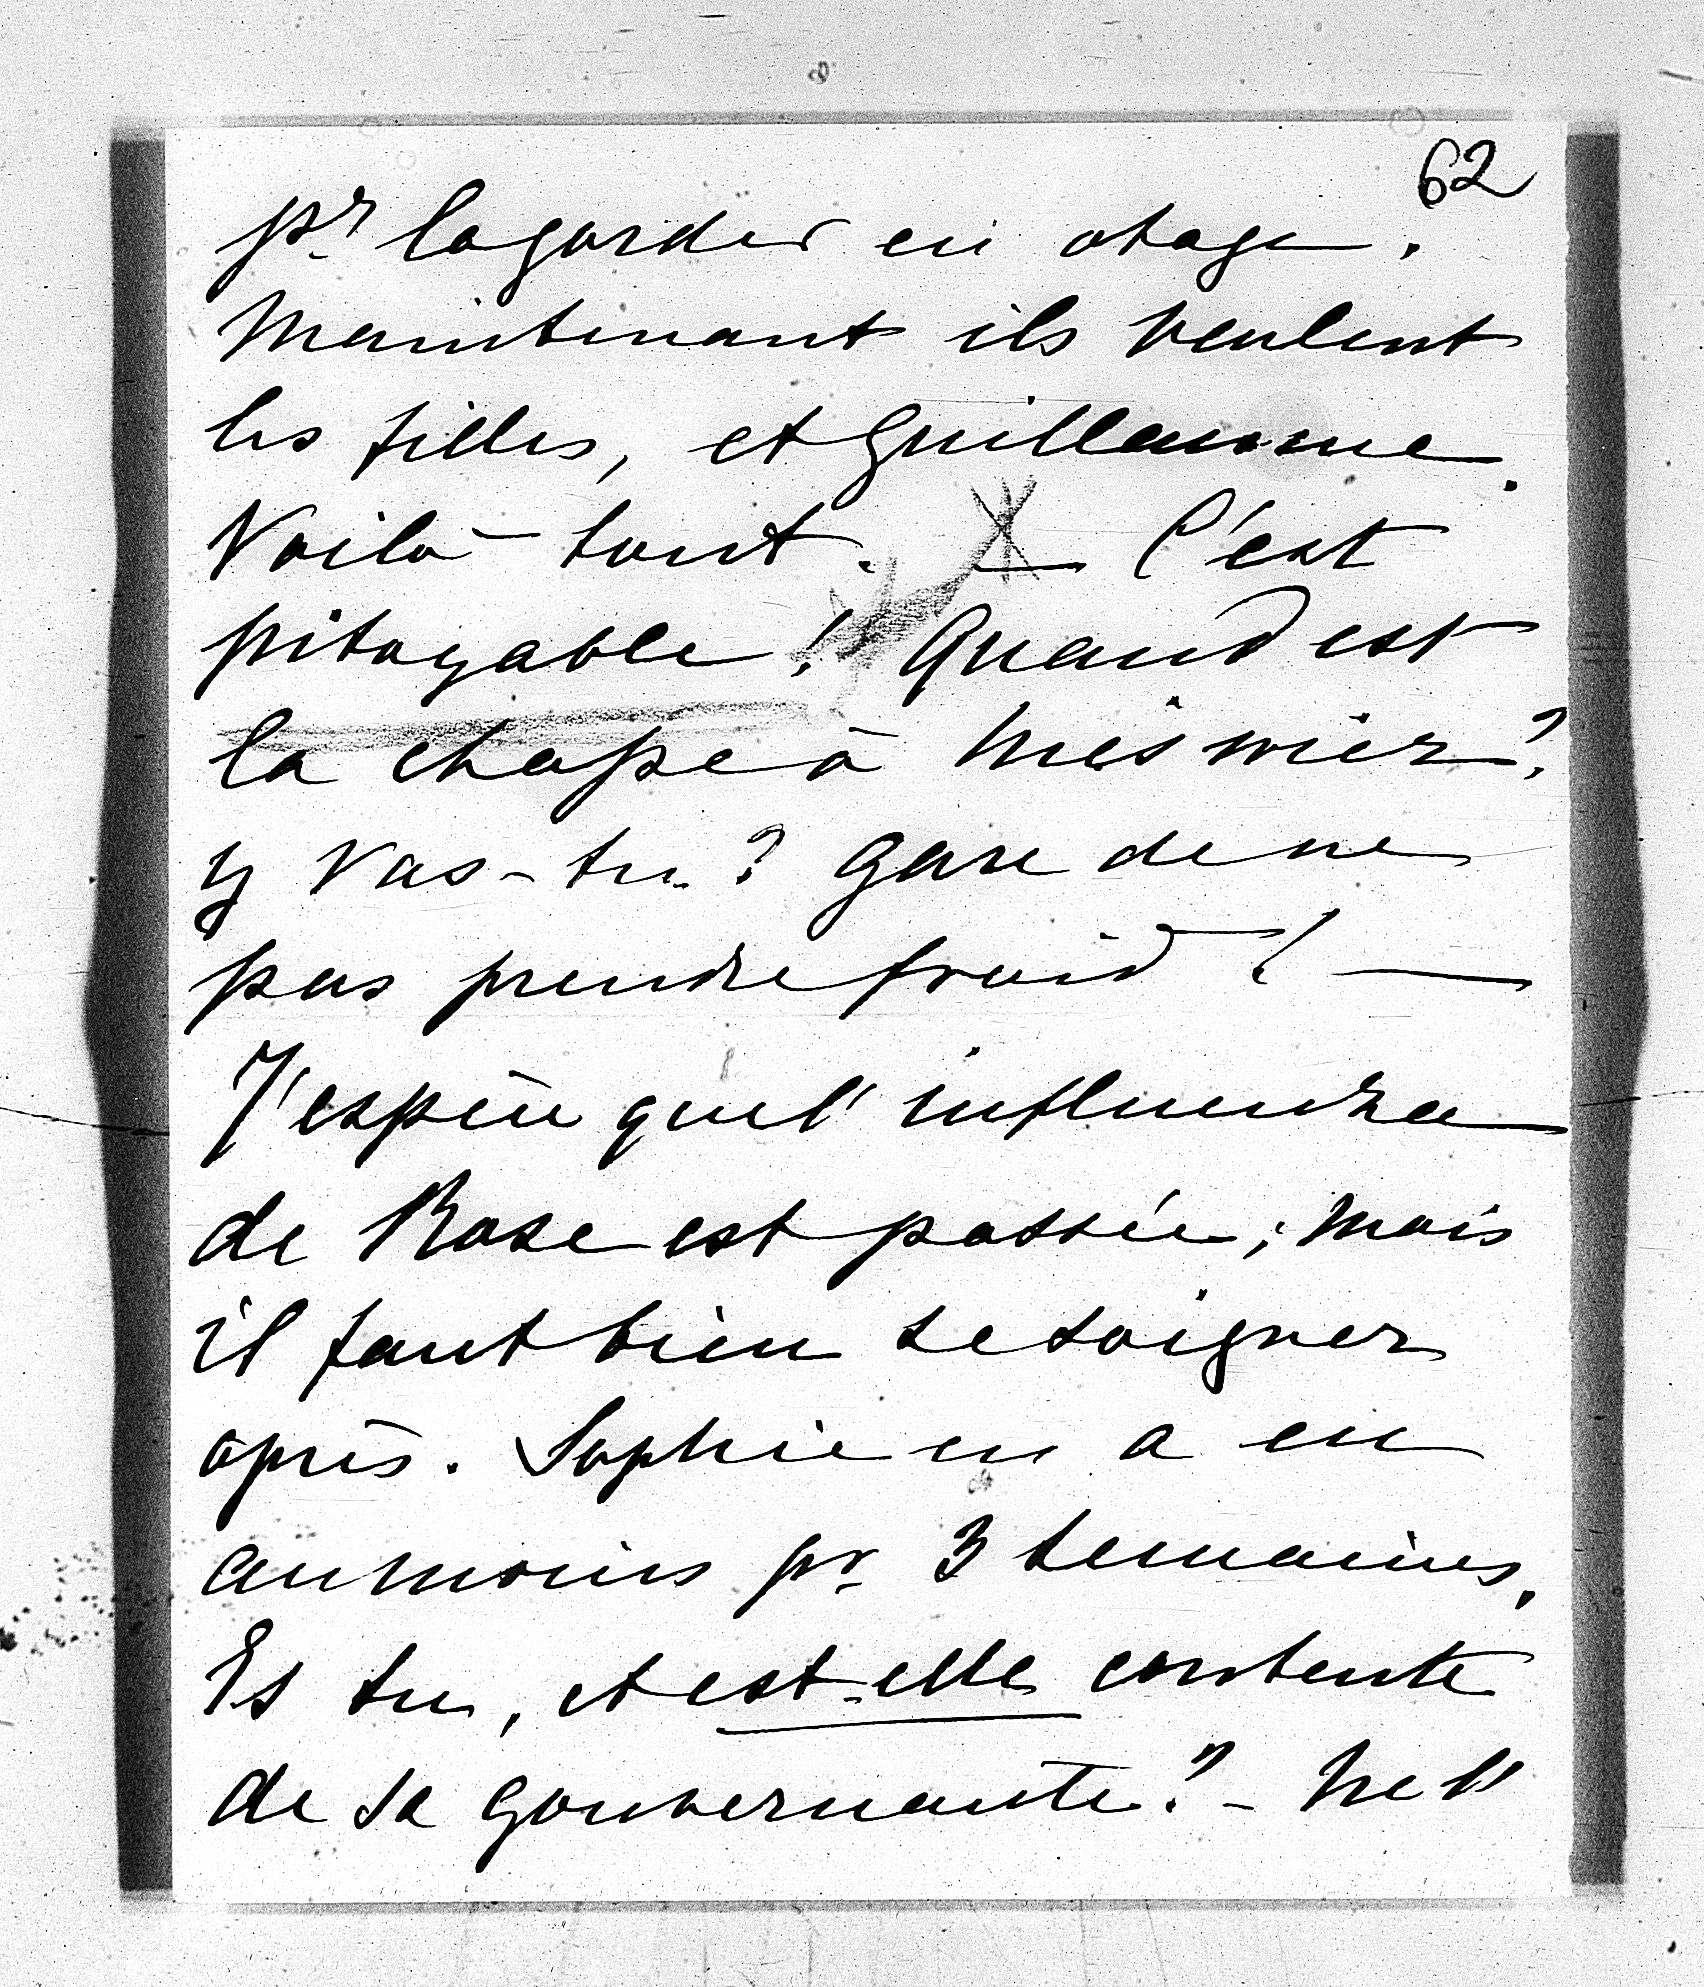 62
pr la garder en otage.
Maintenant ils veulent
les filles, et Guillaume.
Voilà tout. — C'est
pitoyable! Quand est
la chasse à
y vas-tu? Gare de ne
pas prendre froid! —
J'espère que l'influenza
de Rose est passée; mais
il faut bien se soigner
après. Sophie en a eu
au moins pr 3 semaines.
Es tu, et est-elle contente
de sa gouvernante? - Ne l'